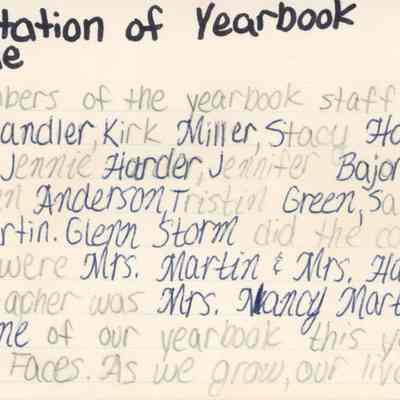 tation of Yearbook
e
bers of the yearbook staff
andler, Kirk Miller, Stacy Ha
Jennie Harder, Jennifer Bajor
n Anderson, Tristin Green, Sa
rtin. Glenn Storm did the co
were Mrs. Martin & Mrs. Ha
apher was Mrs. Nancy Mart
me of our yearbook this y
Faces. As we grow, our live